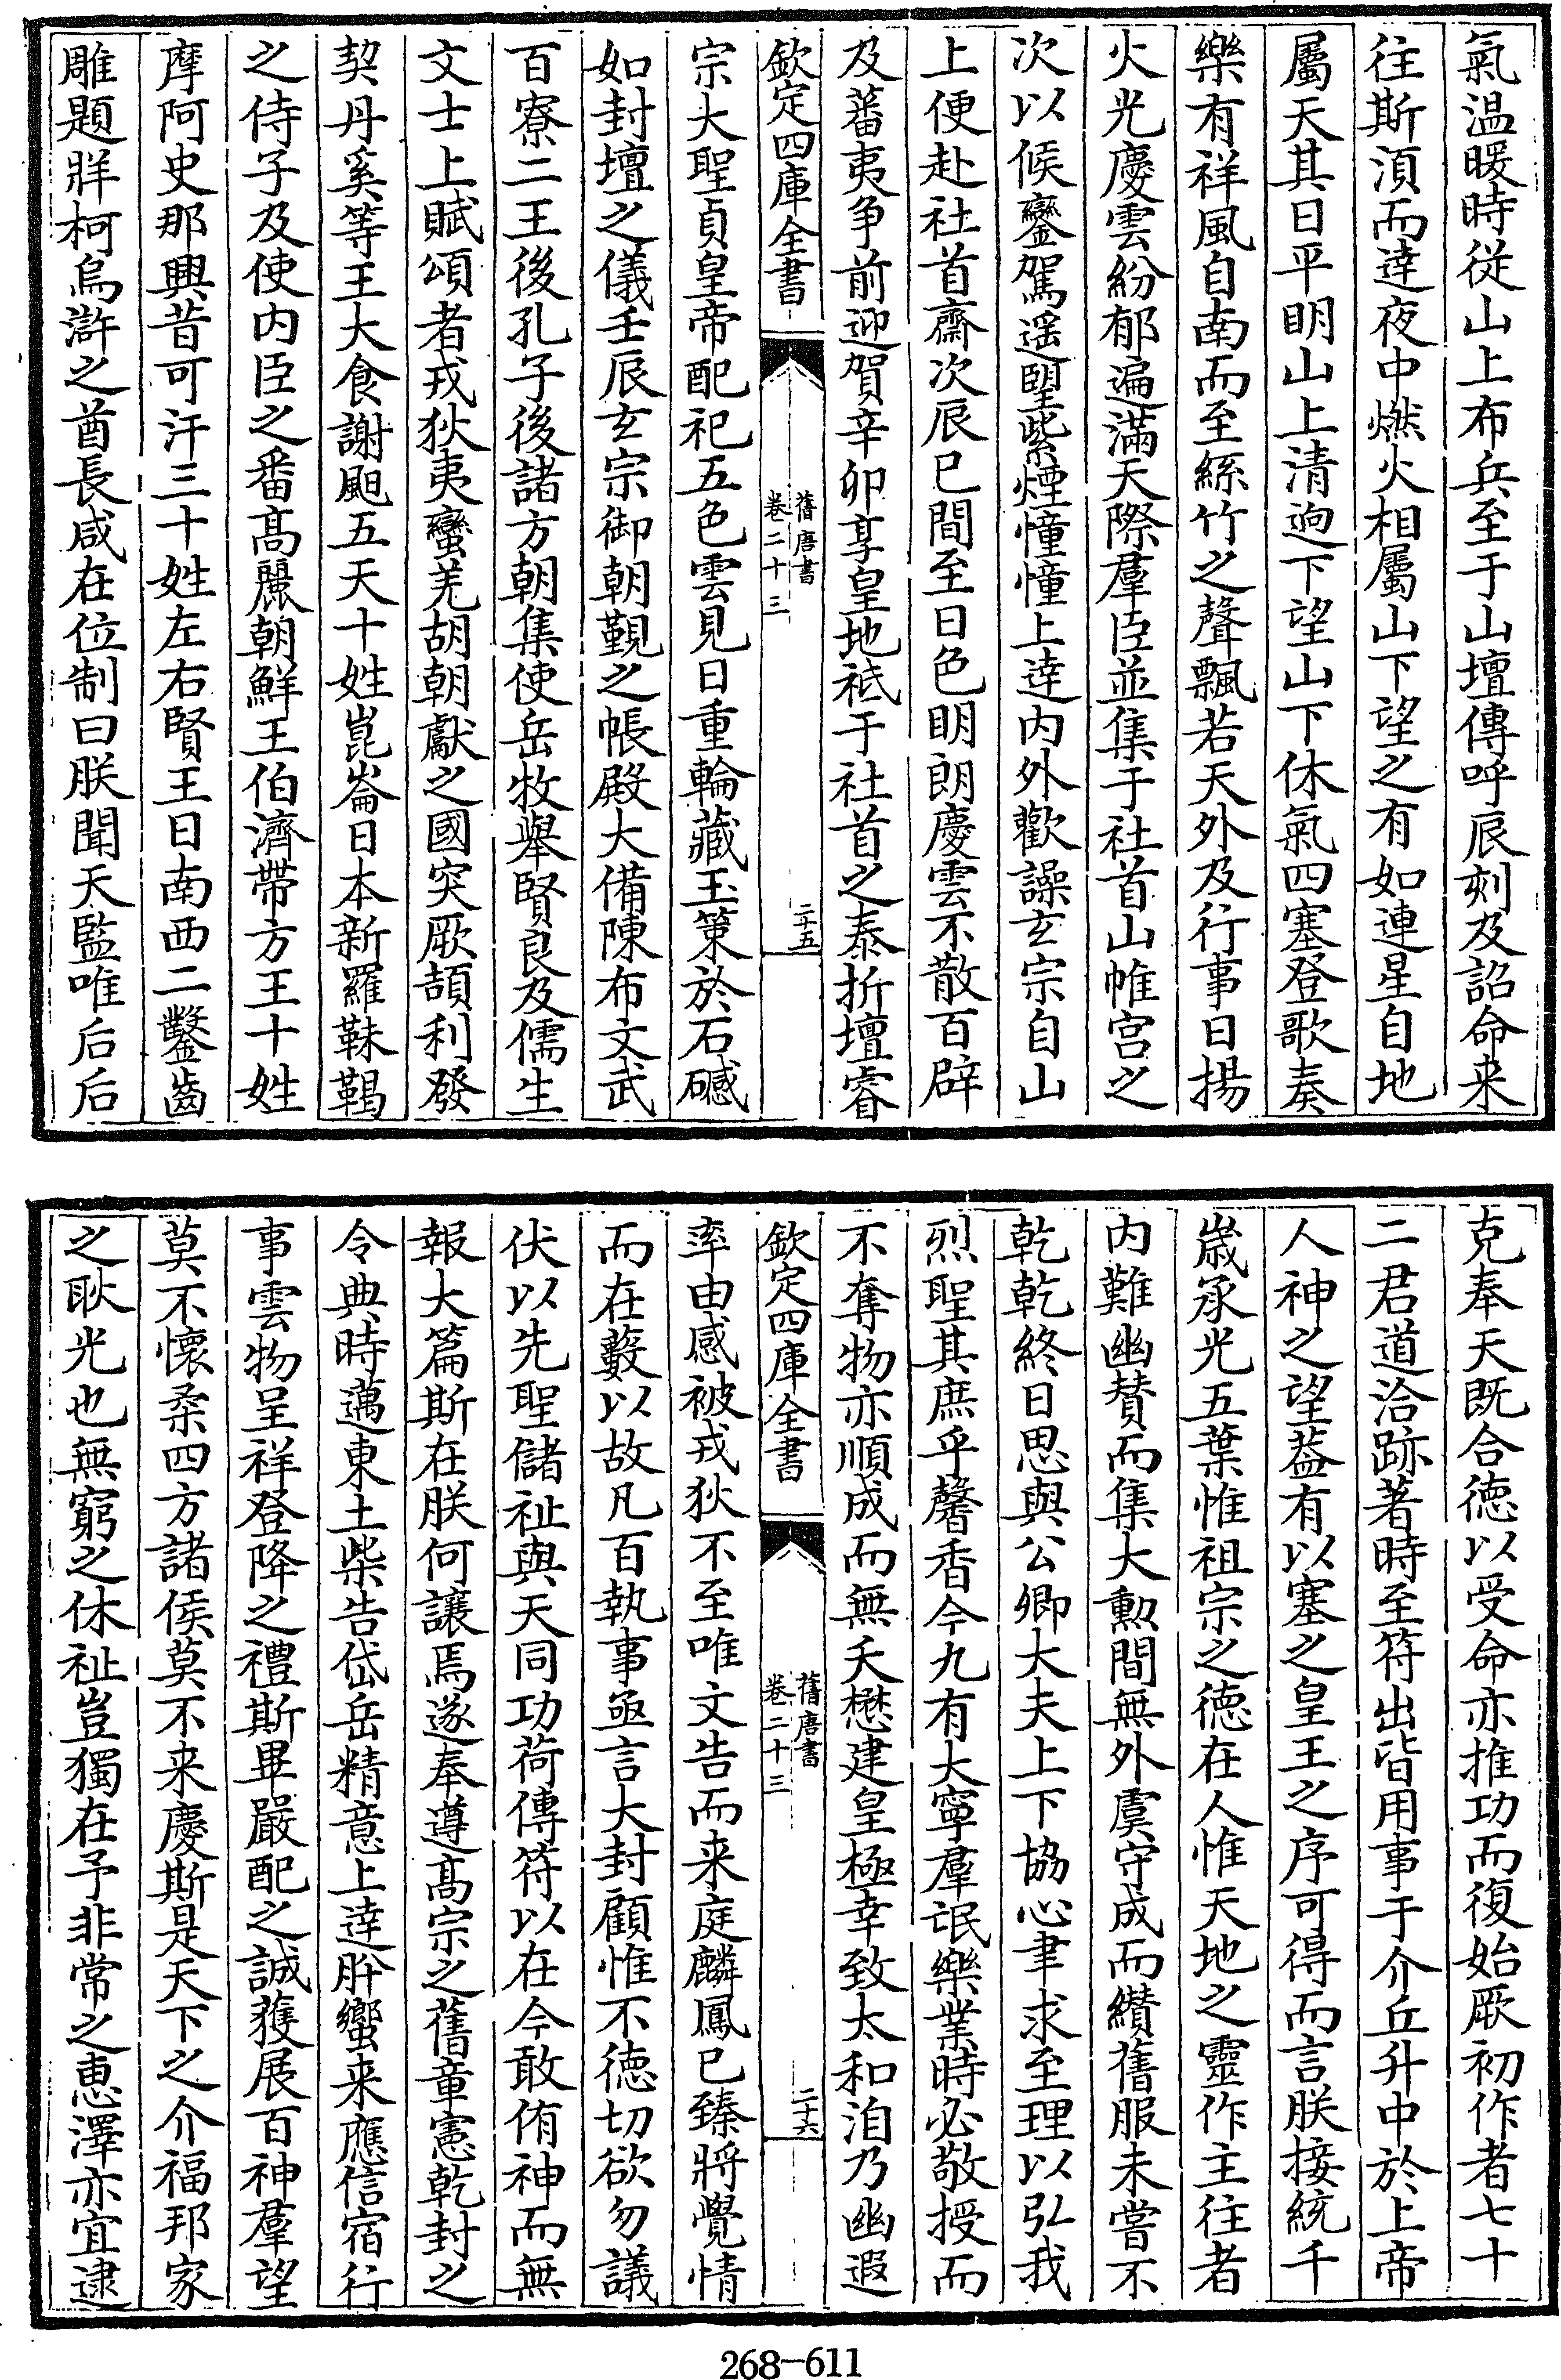 氣温暖時從山上布兵至于山壇傳呼辰刻及詔命来
往斯湏而逹夜中燃火相屬山下望之有如連星自地
屬天其日平明山上清逈下望山下休氣四塞登歌奏
樂有祥風自南而至絲竹之聲飄若天外及行事日揚
火光慶雲紛郁遍滿天際羣臣並集于社首山帷宫之
次以候鑾駕遥望紫煙憧憧上逹内外歡譟玄宗自山
上便赴社首齋次辰巳間至日色明朗慶雲不散百辟
及蕃夷争前迎賀辛卯享皇地祇于社首之泰折壇睿
欽定四庫全書
舊唐書
卷二十三
二十五
宗大聖貞皇帝配祀五色雲見日重輪藏玉策於石䃭
如封壇之儀壬辰玄宗御朝覲之帳殿大備陳布文武
百寮二王後孔子後諸方朝集使岳牧舉賢良及儒生
文士上賦頌者戎狄夷蠻羌胡朝獻之國突厥頡利發
契丹奚等王大食謝䫻五天十姓崑崙日本新羅靺鞨
之侍子及使内臣之番髙麗朝鮮王伯濟帶方王十姓
摩阿史那興昔可汗三十姓左右賢王日南西二鑿齒
雕題牂柯烏滸之酋長咸在位制曰朕聞天監唯后后
克奉天既合徳以受命亦推功而復始厥初作者七十
二君道洽跡著時至符出皆用事于介丘升中於上帝
人神之望葢有以塞之皇王之序可得而言朕接統千
歳承光五葉惟祖宗之徳在人惟天地之靈作主往者
内難幽賛而集大勲間無外虞守成而纉舊服未嘗不
乾乾終日思與公卿大夫上下協心聿求至理以弘我
烈聖其庶乎馨香今九有大寧羣氓樂業時必敬授而
不奪物亦順成而無夭懋建皇極幸致太和洎乃幽遐
欽定四庫全書
舊唐書
卷二十三
二十六
率由感被戎狄不至唯文告而来庭麟鳳已臻將覺情
而在藪以故凡百執事亟言大封顧惟不徳切欲勿議
伏以先聖儲祉與天同功荷傳符以在今敢侑神而無
報大篇斯在朕何讓焉遂奉遵髙宗之舊章憲乾封之
令典時邁東土柴告岱岳精意上逹肸蠁来應信宿行
事雲物呈祥登降之禮斯畢嚴配之誠獲展百神羣望
莫不懷柔四方諸侯莫不来慶斯是天下之介福邦家
之耿光也無窮之休祉豈獨在予非常之恵澤亦宜逮
268-611